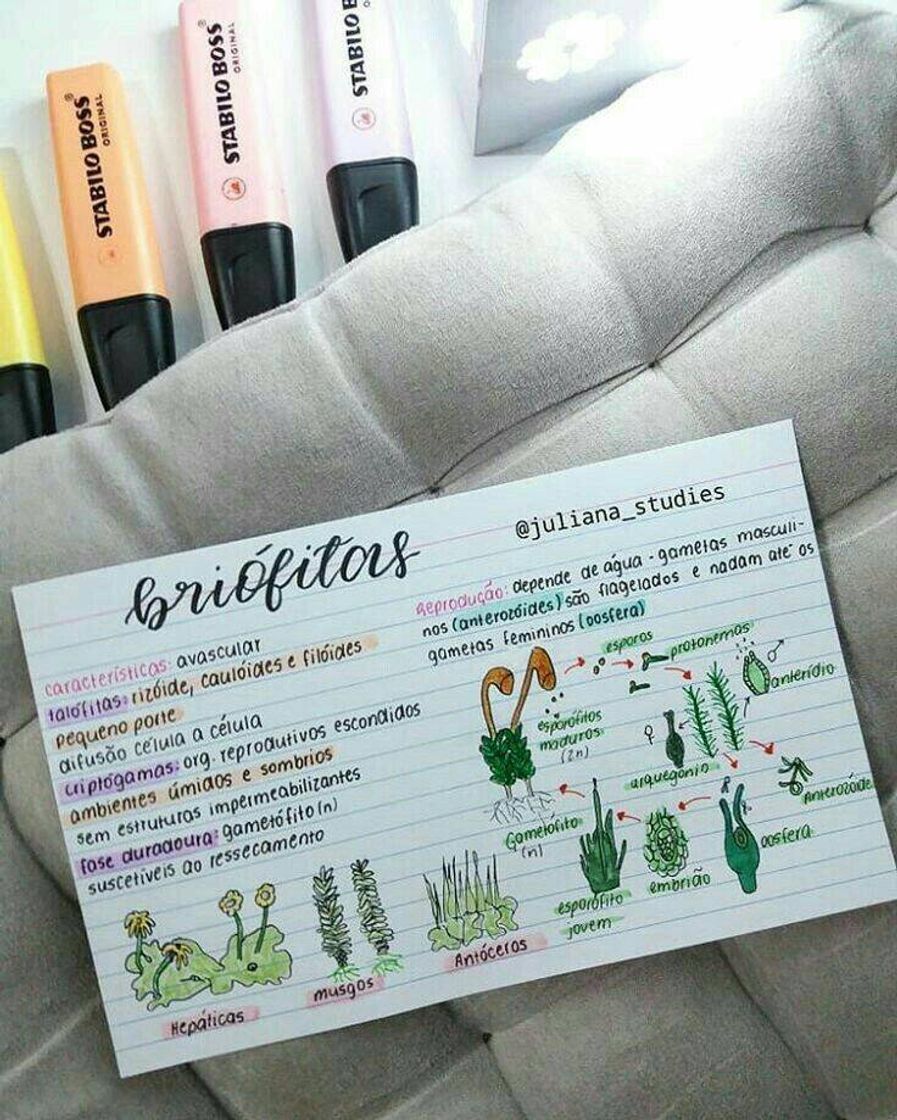 STABILO BOSS
ORIGINAL
STABILO BOSS
ORIGINAL
STABILO BOSS
briófitas
@juliana_studies
características: avascular
talófitas: rizóide, caulóides e filóides
pequeno porte
difusão célula a célula
criptógamas: org. reprodutivos escondidos
ambientes úmidos e sombrios
sem estruturas impermeabilizantes
fase duradoura: gametófito (n)
suscetíveis ao ressecamento
Hepáticas
musgos
Antóceros
Reprodução: depende de água - gametas masculi-
nos (anterozóides) são flagelados e nadam até os
gametas femininos (oosfera)
esporos
protonemas
anterídio
esporófitos
maduros
(2n)
arquegônio
Anterozóide
Gametófito
(n)
oosfera
embrião
esporófito
jovem